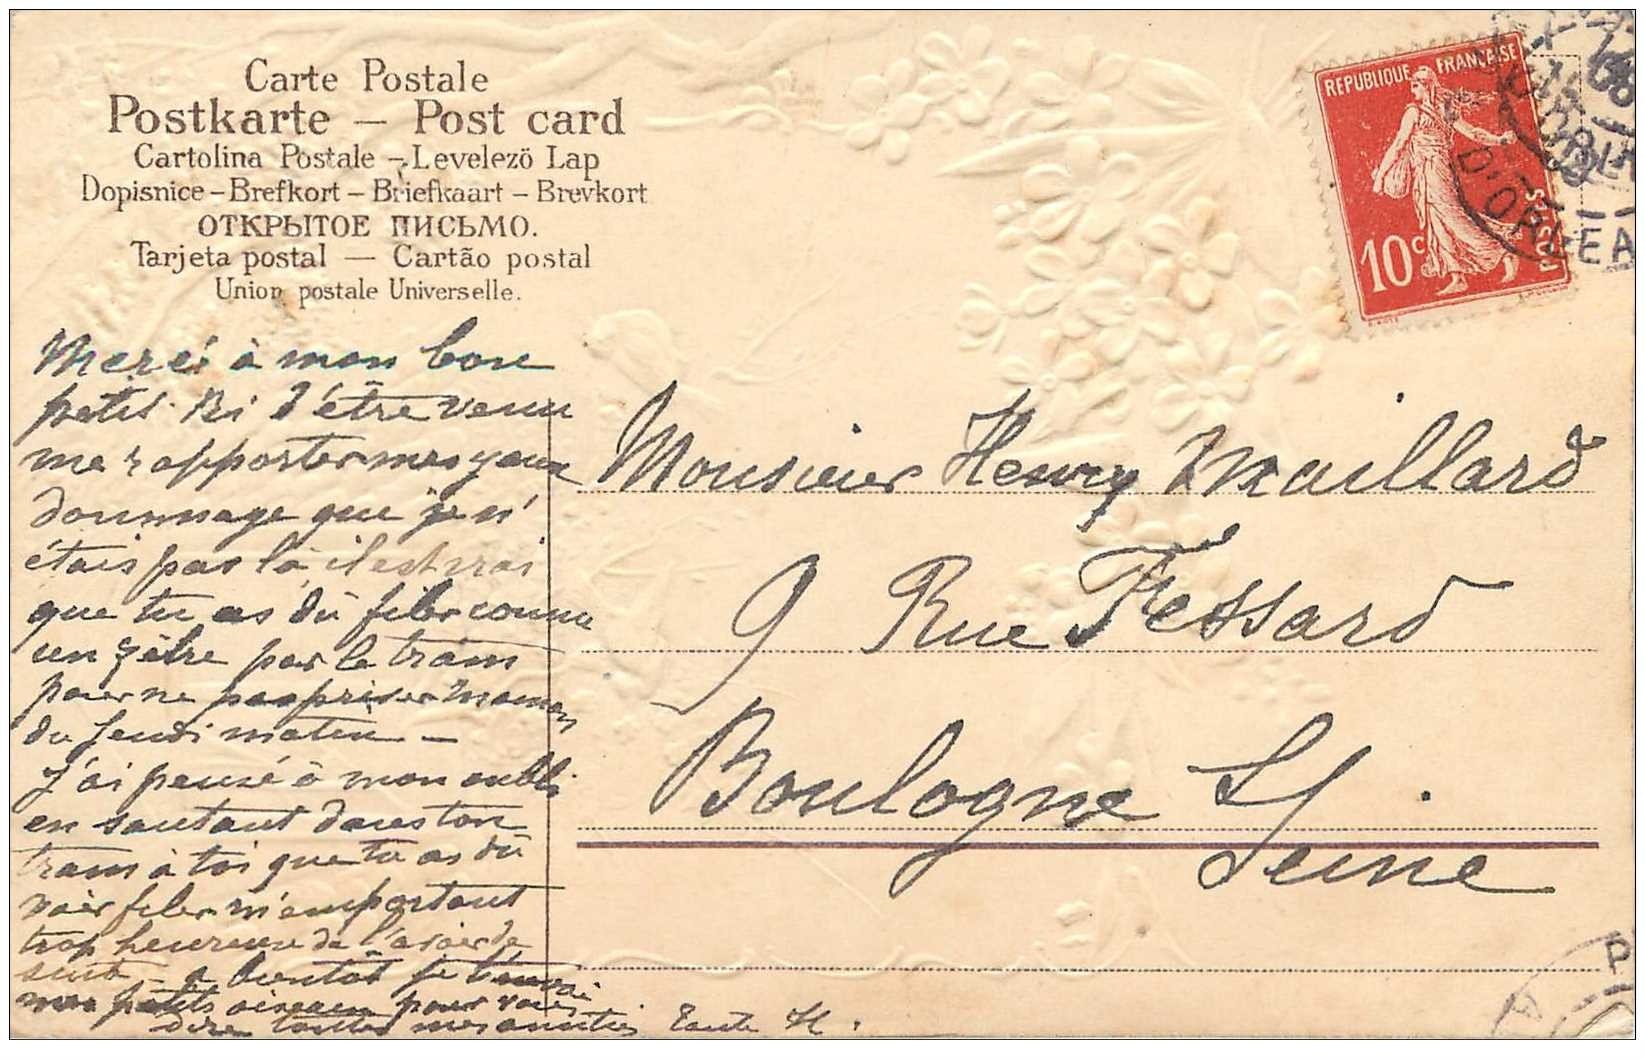 Carte Postale
Postkarte — Post card
Cartolina Postale – Levelezö Lap
Dopisnice – Brefkort – Briefkaart – Brevkort
ОТКРЫТОЕ ПИСЬМО.
Tarjeta postal — Cartão postal
Union postale Universelle.
REPUBLIQUE FRANÇAISE
10c
POSTES
D'ORLEA
Merci à mon bon
petit Ri d'être venu
me rapporter mes yeux
dommage que je n'
étais pas là il est vrai
que tu as dû filer comme
un zèbre par le tram
pour ne pas priver Maman
du Jeudi matin —
J'ai pensé à mon oubli
en sautant dans ton
tram à toi que tu as dû
voir filer m'emportant
trop heureuse de l'avoir de
suite – à bientôt je t'envoi
mes petits oiseaux pour vous
dire toutes mes amitiés Tante H.
Monsieur Henry Maillard
9 Rue Fessard
Boulogne s/
Seine
P